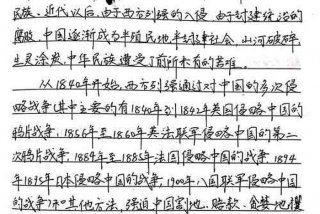 民族。近代以后,由于西方列强的入侵,由于封建统治的
腐败,中国逐渐成为半殖民地半封建社会,山河破碎,
生灵涂炭,中华民族遭受了前所未有的苦难。
从1840年开始,西方列强通过对中国的多次侵
略战争(其中主要的有1840年到1842年英国侵略中国的
鸦片战争,1856年至1860年英法联军侵略中国的第二
次鸦片战争,1884年至1885年法国侵略中国的战争,1894
年1895年日本侵略中国的战争,1900年八国联军侵略中国
的战争)和其他方法,强迫中国割地、赔款,贪婪地攫